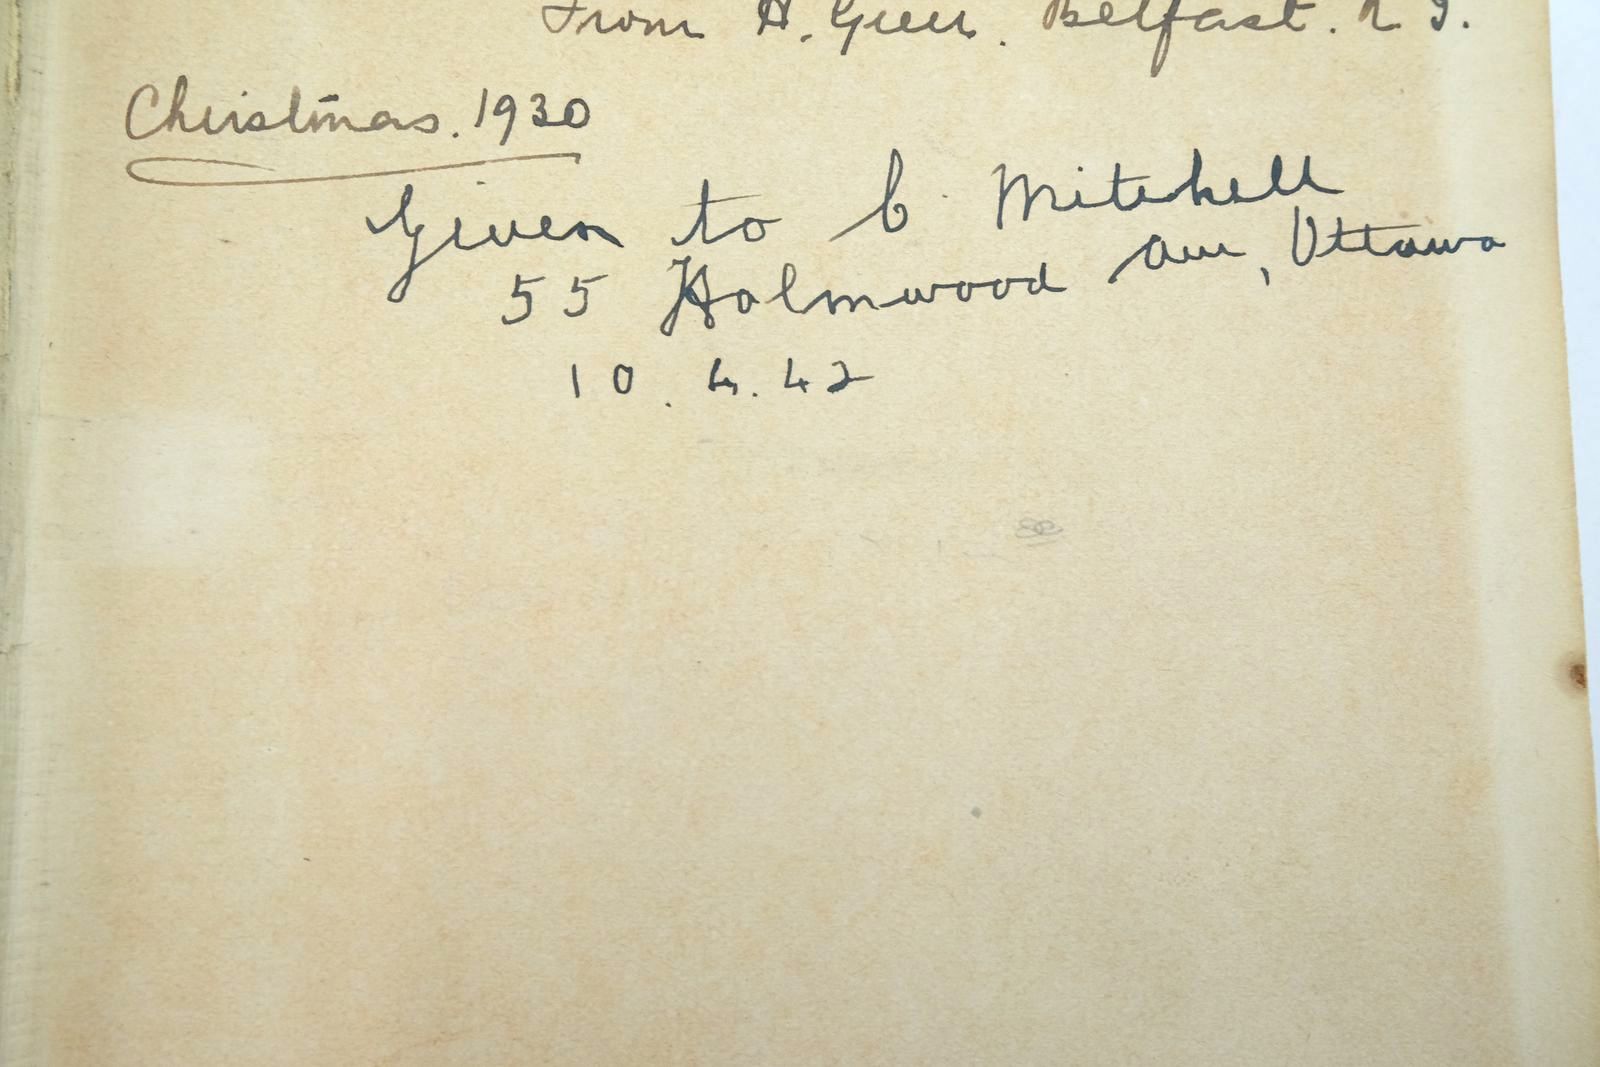 From H. Greer. Belfast. N I.
Christmas. 1930
Given to C. Mitchell
55 Holmwood Ave, Ottawa
10. 4. 42